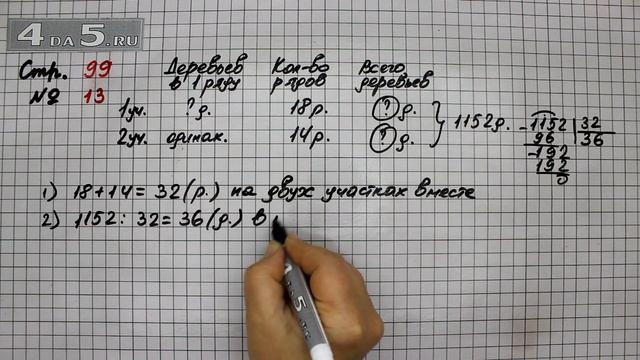 4DA5.RU
Стр. 99 Деревьев в 1 ряду Кол-во рядов Всего деревьев
№ 13
1уч. ? д. 18 р. ? д.
2уч. одинак. 14 р. ? д. } 1152 д.
1152 | 32
96 | 36
192
192
0
1) 18+14=32 (р.) на двух участках вместе
2) 1152:32=36 (д.) в